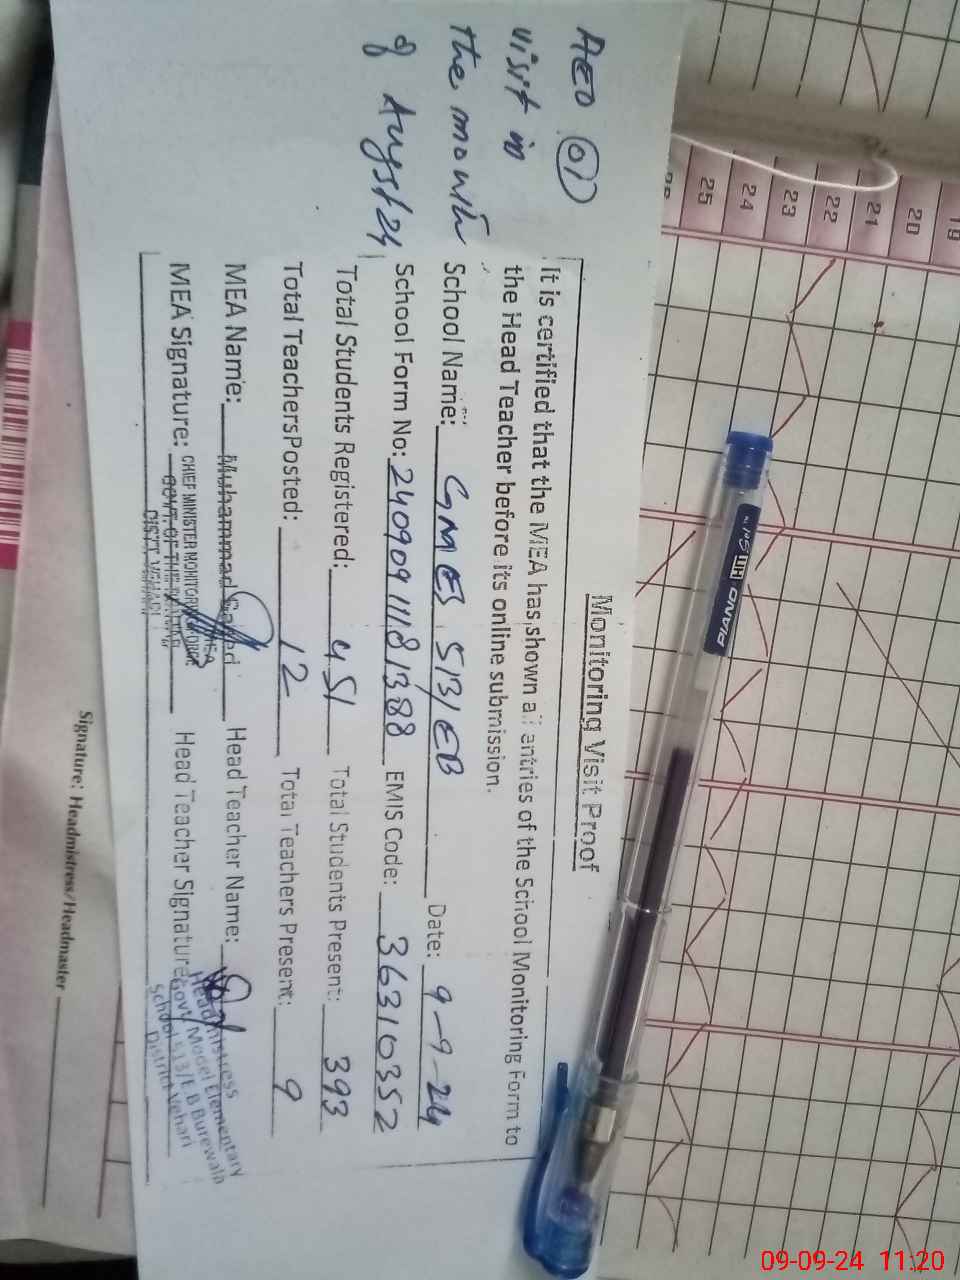 AEO 01
visit in
the month
of August 24
Monitoring Visit Proof
It is certified that the MEA has shown all entries of the School Monitoring Form to
the Head Teacher before its online submission.
School Name: GMES 513/EB Date: 9-9-24
School Form No: EMIS Code: 36310352
Total Students Registered: 451 Total Students Present: 393
Total TeachersPosted: 12 Total Teachers Present: 9
MEA Name: Muhammad Head Teacher Name:
MEA Signature: Head Teacher Signature:
CHIEF MINISTER MONITORING FORCE
GOVT. OF THE PUNJAB
DISTT. VEHARI
Headmistress
Govt Model Elementary
School 513/E.B Burewala
District Vehari
Signature: Headmistress/Headmaster
19
20
21
22
23
24
25
PIANO
09-09-24 11:20